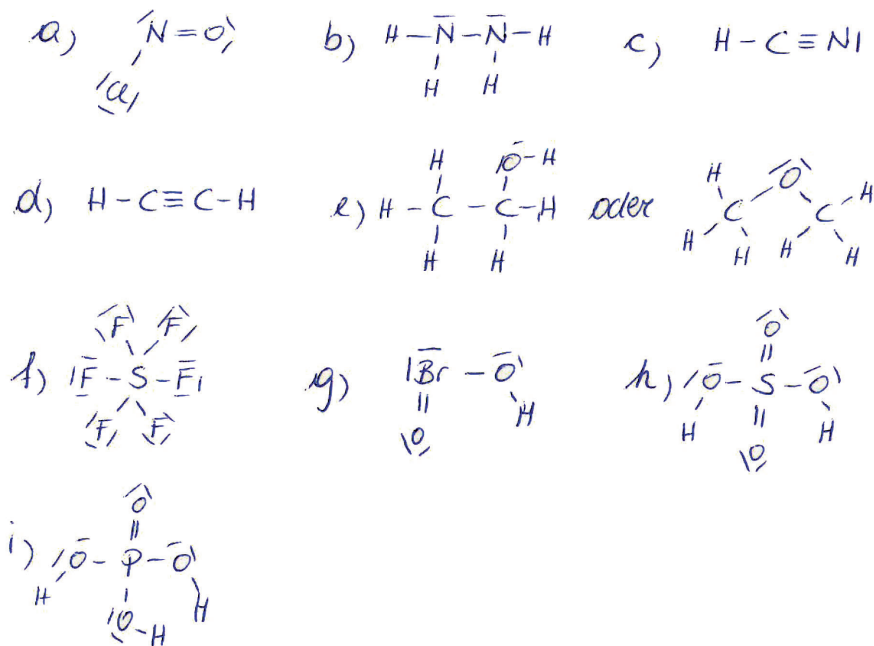 a) N=O
Cl
b) H-N-N-H
H H
c) H-C≡N
d) H-C≡C-H
e) H-C-C-H
H O-H
H H
oder
O
H H
C C
H H H H
f) F F
F-S-F
F F
g) Br-O
O H
h) O
O-S-O
H O H
i) O
O-P-O
H H
O-H